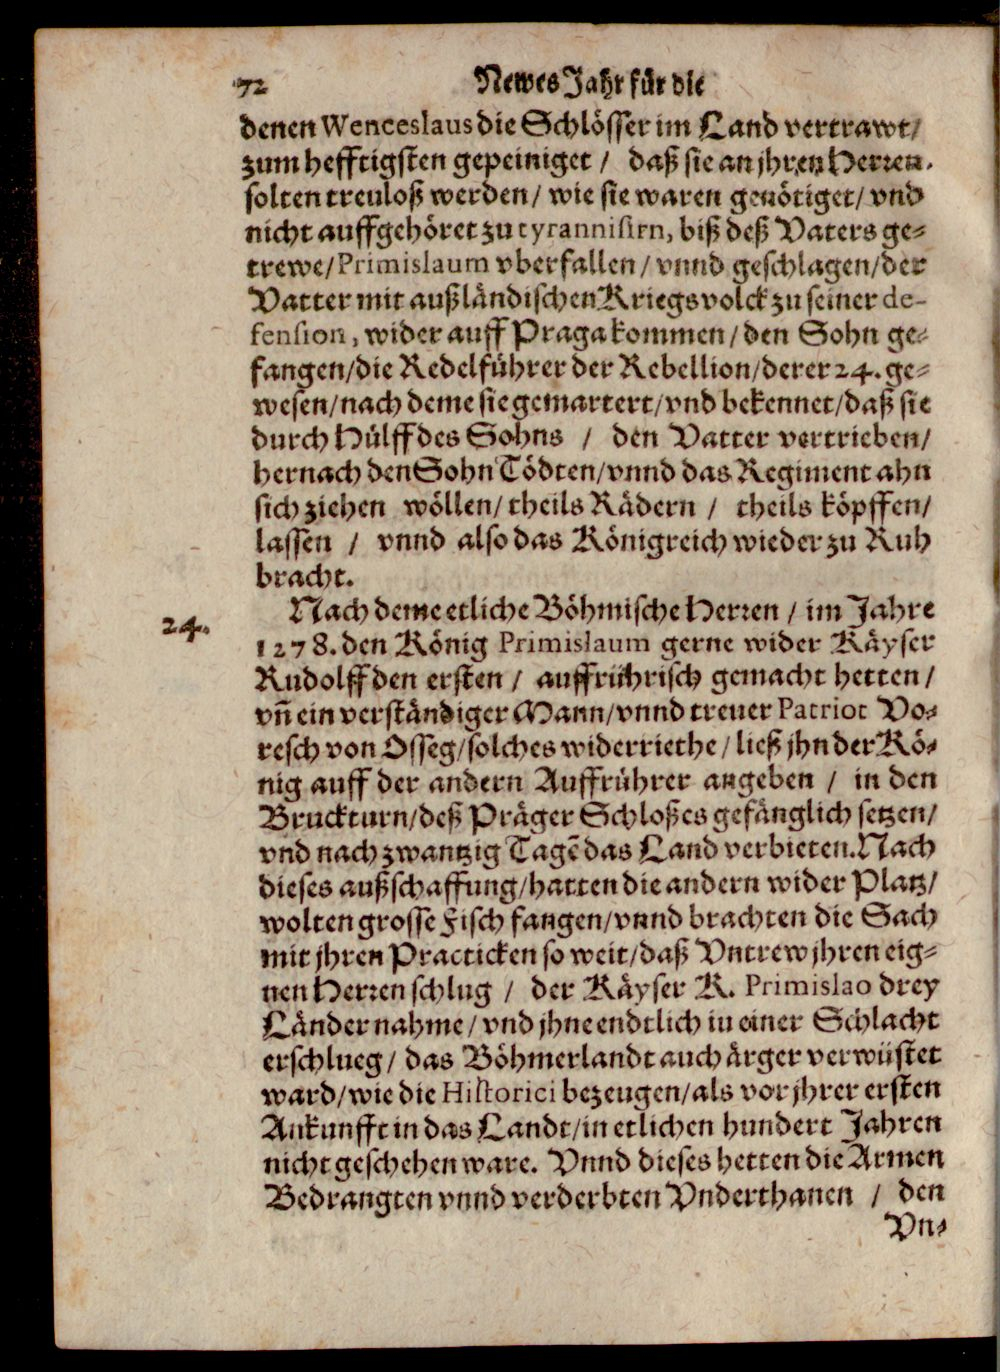 72 Newes Jahr für die
denen Wenceslaus die Schlösser im Land vertrawt/
zum hefftigsten gepeiniget / daß sie an jhren Herren.
solten treuloß werden/ wie sie waren genötiget/ vnd
nicht auffgehöret zu tyrannisirn, biß deß Vaters ge-
trewe/ Primislaum vberfallen/ vnnd geschlagen/ der
Vatter mit außländischen Kriegsvolck zu seiner de-
fension, wider auff Praga kommen/ den Sohn ge-
fangen/ die Redelführer der Rebellion/ derer 24. ge-
wesen/ nach deme sie gemartert/ vnd bekennet/ daß sie
durch Hülff des Sohns / den Vatter vertrieben/
hernach den Sohn Tödten/ vnnd das Regiment ahn
sich ziehen wöllen/ theils Rädern / theils köpffen/
lassen / vnnd also das Königreich wieder zu Ruh
bracht.
24. Nach deme etliche Böhmische Herren / im Jahre
1278. den König Primislaum gerne wider Käyser
Rudolff den ersten / auffrührisch gemacht hetten/
vñ ein verständiger Mann/ vnnd treuer Patriot Vo-
resch von Osseg/ solches widerriethe/ ließ jhn der Kö-
nig auff der andern Auffrührer angeben / in den
Bruckturn/ deß Präger Schloßes gefänglich setzen/
vnd nach zwantzig Tagẽ das Land verbieten. Nach
dieses außschaffung/ hatten die andern wider Platz/
wolten grosse Fisch fangen/ vnnd brachten die Sach
mit jhren Practicken so weit/ daß Vntrew jhren eig-
nen Herren schlug / der Käyser K. Primislao drey
Länder nahme/ vnd jhne endtlich in einer Schlacht
erschlueg/ das Böhmerlandt auch ärger verwüstet
ward/ wie die Historici bezeugen/ als vor jhrer ersten
Ankunfft in das Landt/ in etlichen hundert Jahren
nicht geschehen ware. Vnnd dieses hetten die Armen
Bedrangten vnnd verderbten Vnderthanen / den
Vn-